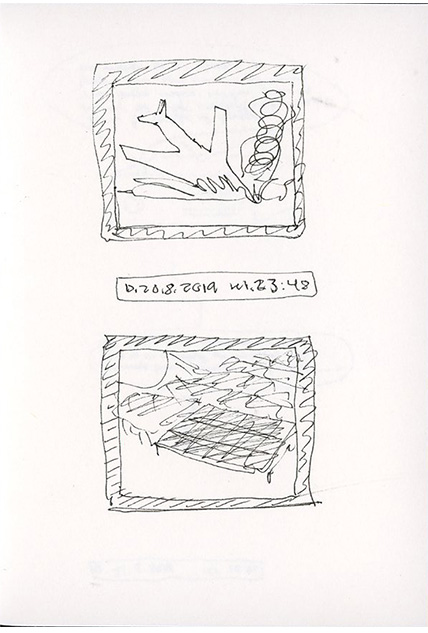 D.20.8.2019 kl.23:48